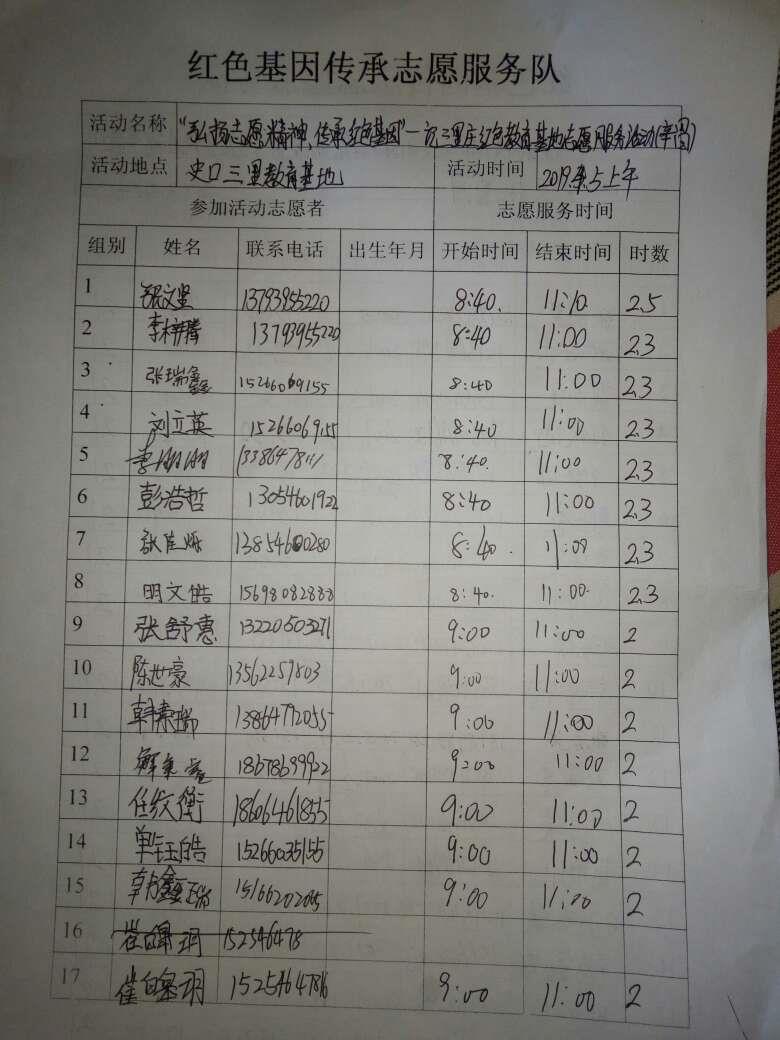 红色基因传承志愿服务队
活动名称 "弘扬志愿精神，传承红色基因"一 三里庄红色教育基地志愿服务活动
活动地点 史口三里教育基地 活动时间 2019 上午
参加活动志愿者 志愿服务时间
组别 姓名 联系电话 出生年月 开始时间 结束时间 时数
1 13793955220 8:40. 11:10. 2.5
2 李梓腾 13793955220 8:40 11:00 2.3
3 张瑞鑫 15266069155 8:40 11:00 2.3
4 刘立英 15266069155 8:40 11:00 2.3
5 8:40. 11:00 2.3
6 彭浩哲 13054601922 8:40 11:00 2.3
7 张佳 13854600280 8:40. 11:00 2.3
8 明文皓 15698082888 8:40. 11:00. 2.3
9 张舒惠 13220503271 9:00 11:00 2
10 陈世豪 13562259803 9:00 11:00 2
11 13864772055 9:00 11:00 2
12 18678699922 9:00 11:00 2
13 任纹衡 18606461855 9:00 11:00 2
14 单钰皓 15266035155 9:00 11:00 2
15 韩鑫瑞 9:00 11:00 2
16 152546478
17 15254647816 9:00 11:00 2